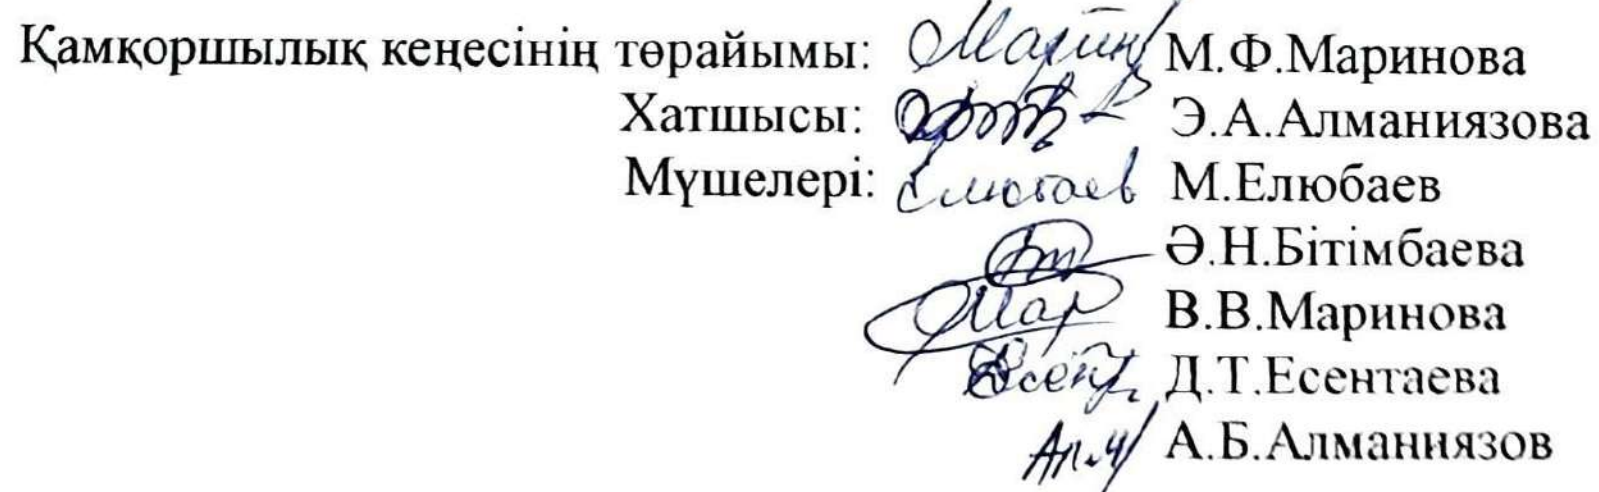 Қамқоршылық кеңесінің төрайымы: М.Ф.Маринова
Хатшысы: Э.А.Алманиязова
Мүшелері: Елюбаев М.Елюбаев
Ә.Н.Бітімбаева
Мар В.В.Маринова
Д.Т.Есентаева
А.Б.Алманиязов